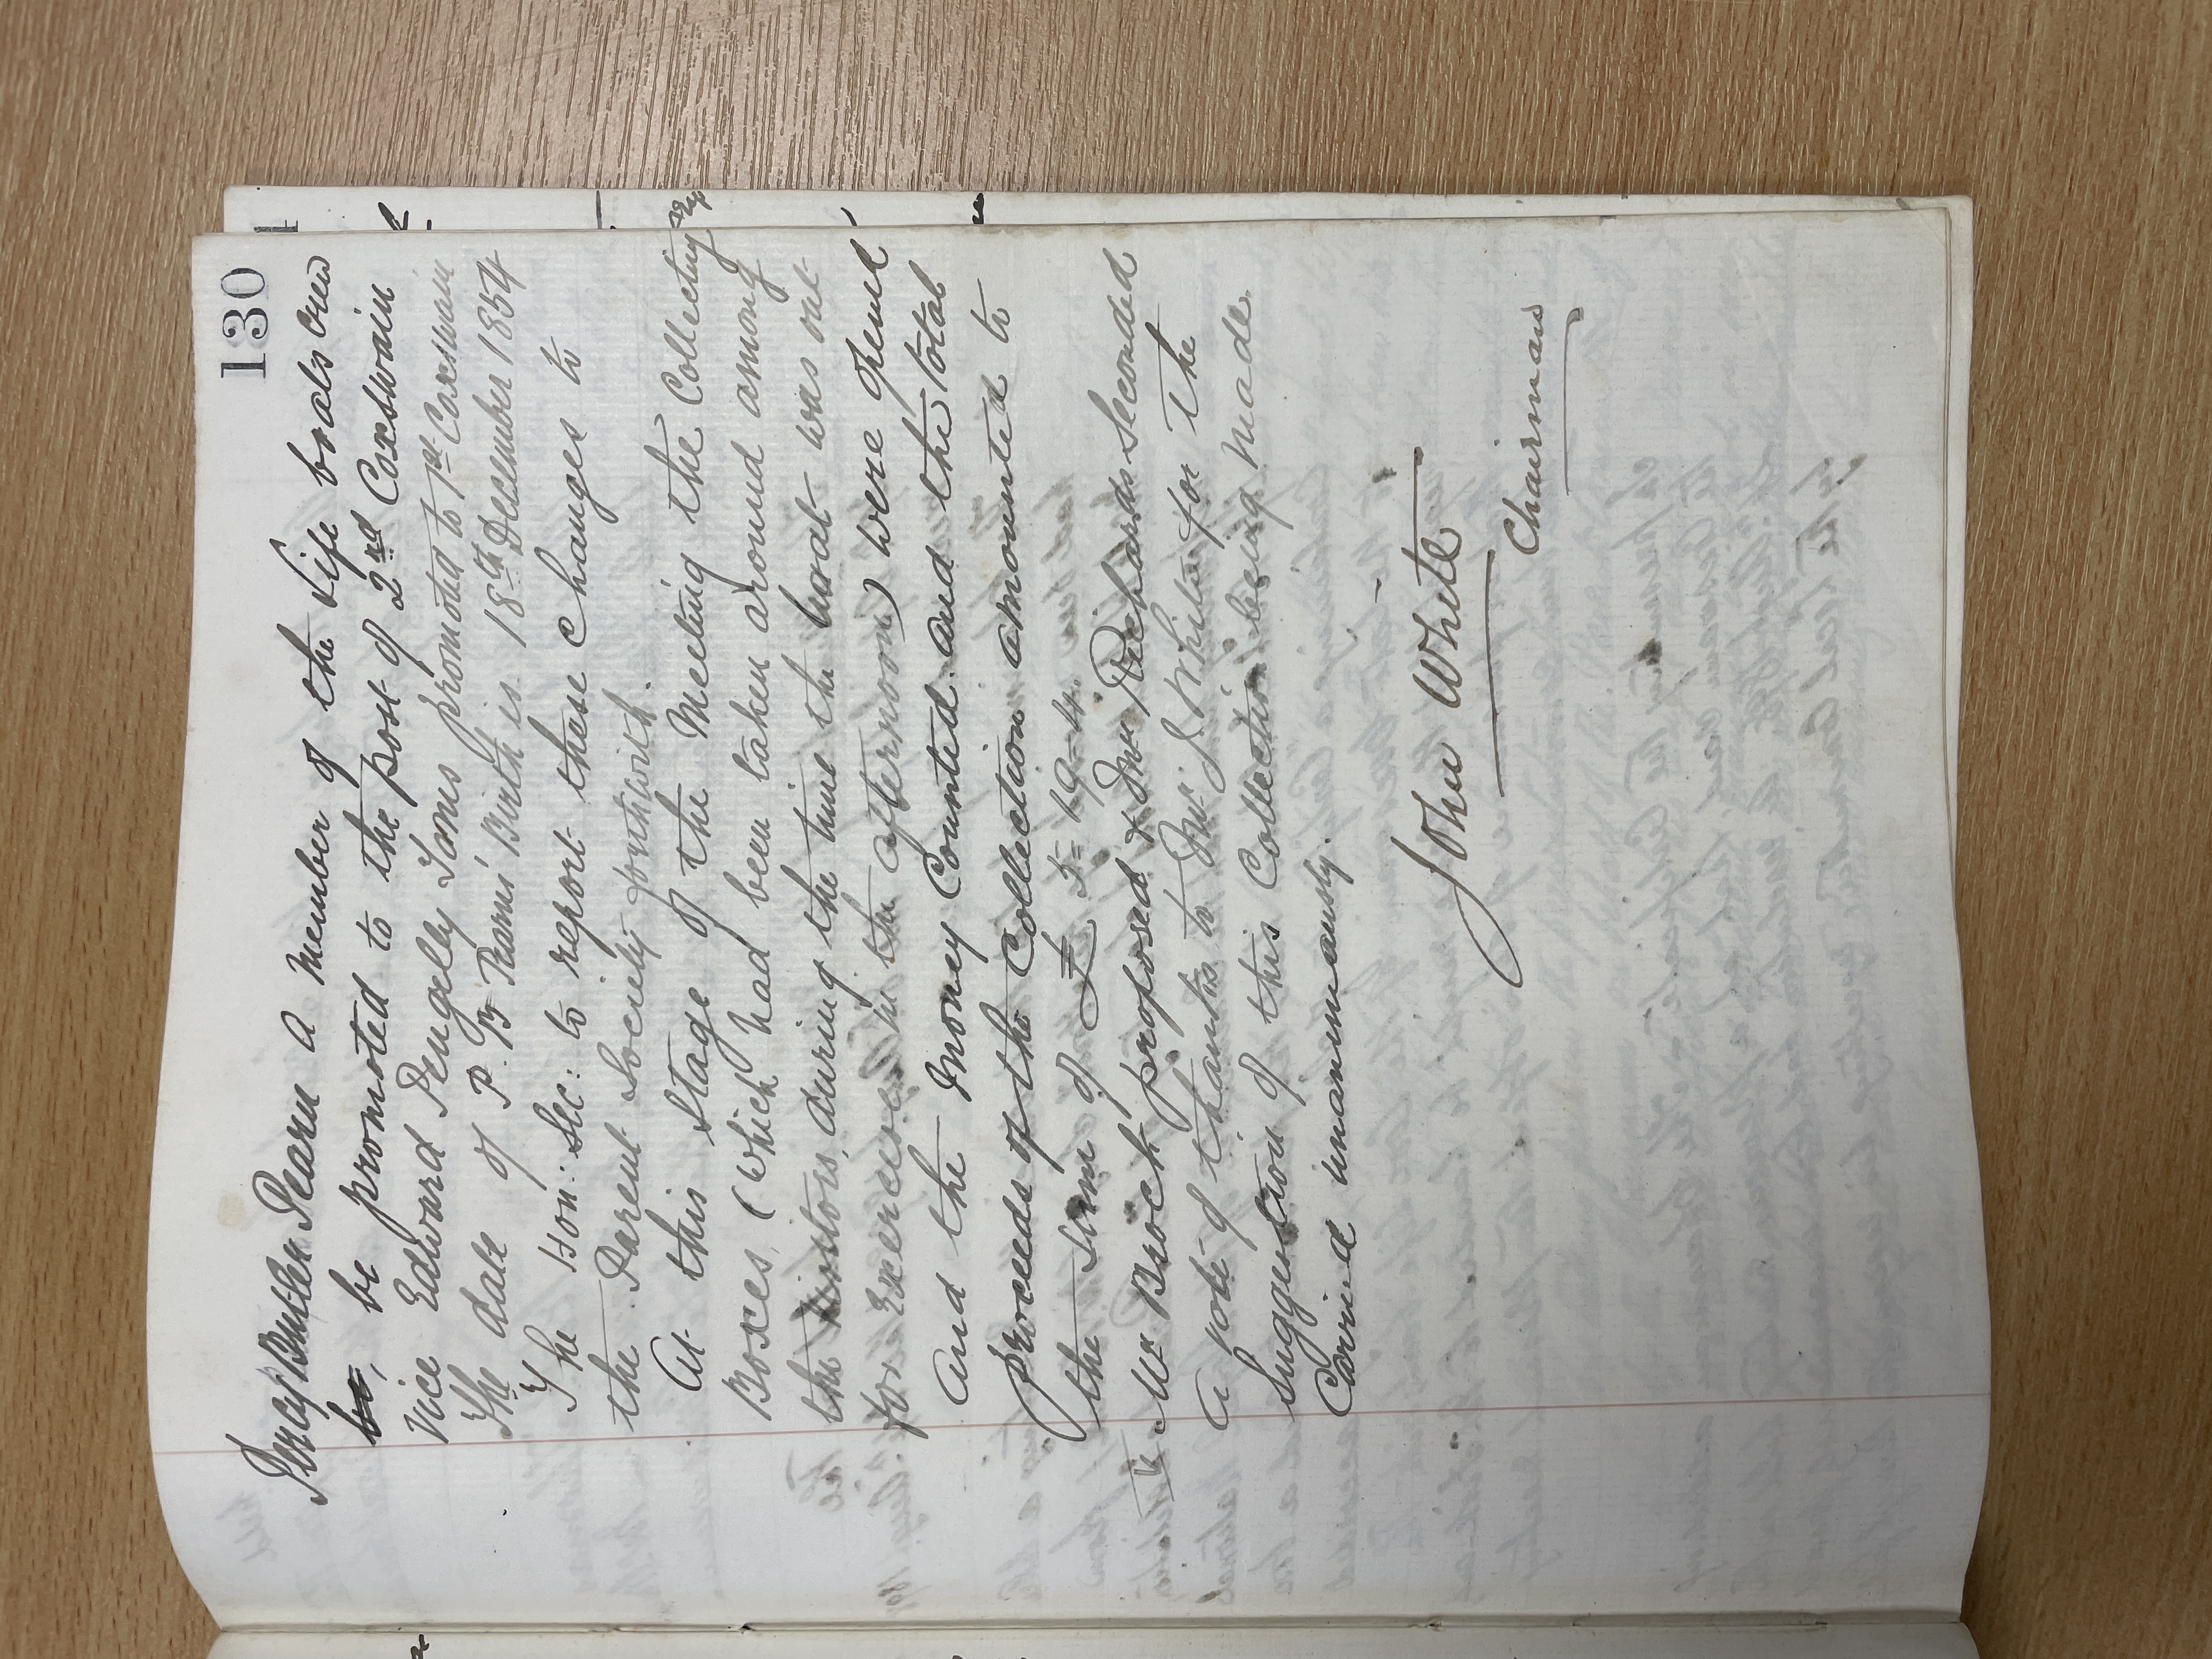 130
Percy Butler Pearn a Member of the Life boats crew
be, be promoted to the post of 2nd Coxswain
vice Edward Pengelly Toms promoted to 1st Coxswain
The date of P. B Pearns' Birth is 18th December 1854
The Hon: Sec: to report these changes to
the Parent Society forthwith.
At this stage of the Meeting the Collecting
Boxes, (which had been taken around among
the visitors, during the time the boat was out
for Exercise in the afternoon) were opened
and the Money Counted and the total
proceeds of the Collection amounted to
the Sum of £ 5= 19-4.
Mr Brock proposed & Mr Richards Seconded
a vote of thanks to Mr J White for the
Suggestion of this Collection being made
Carried unanimously.
John White
Chairman